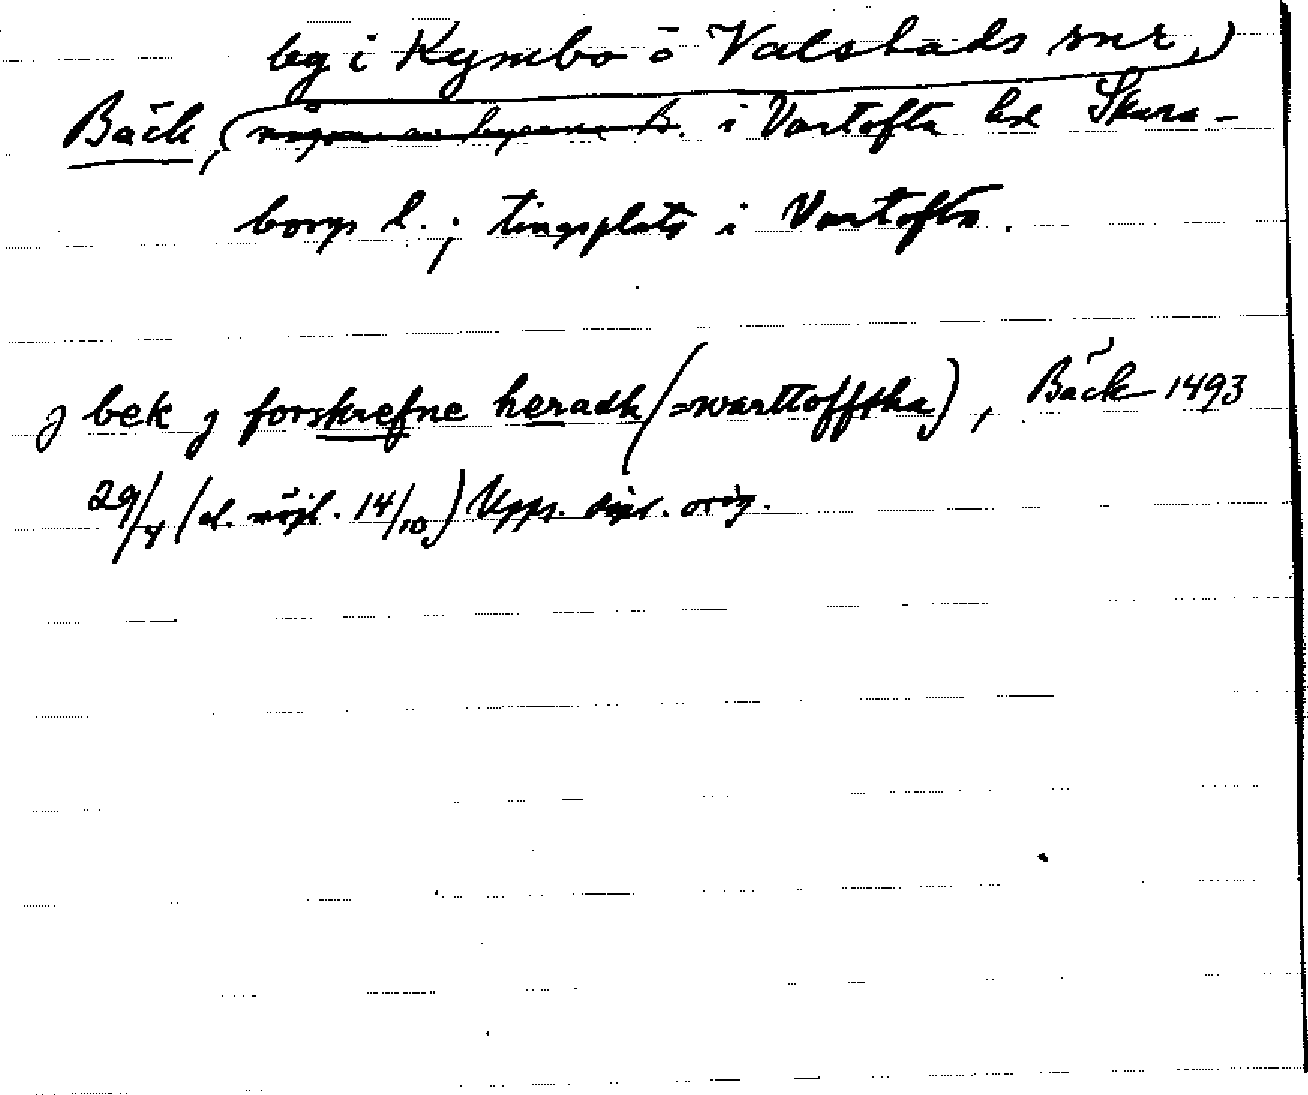 by i Kymbo o Valstads snr,)
Bäck, (några av byarna B. i Vartofta hd Skara-
borgs l.; tingsplats i Vartofta.
j bek j forskrefne heradh (=warttofftha), Bäck 1493
29/4 (el. möjl. 14/10) Upps. dipl. orig.